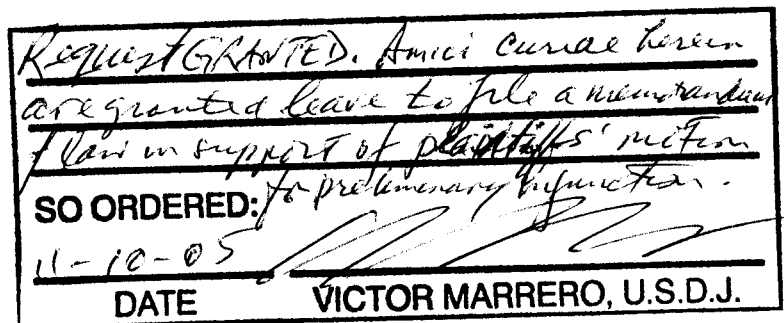 Request GRANTED. Amici Curiae herein
are granted leave to file a memorandum
of law in support of plaintiffs' motion
for preliminary injunction.
SO ORDERED:
11-10-05
DATE VICTOR MARRERO, U.S.D.J.